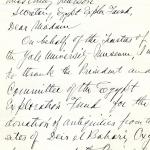 Secretary Egypt Expl. Fund,
Dear Madam
On behalf of the Trustees of
the Yale University Museum, I
to thank the President and
Committee of the Egypt
Exploration Fund for the
donation of antiquities from
sites of Deir el Bahari, Oxy